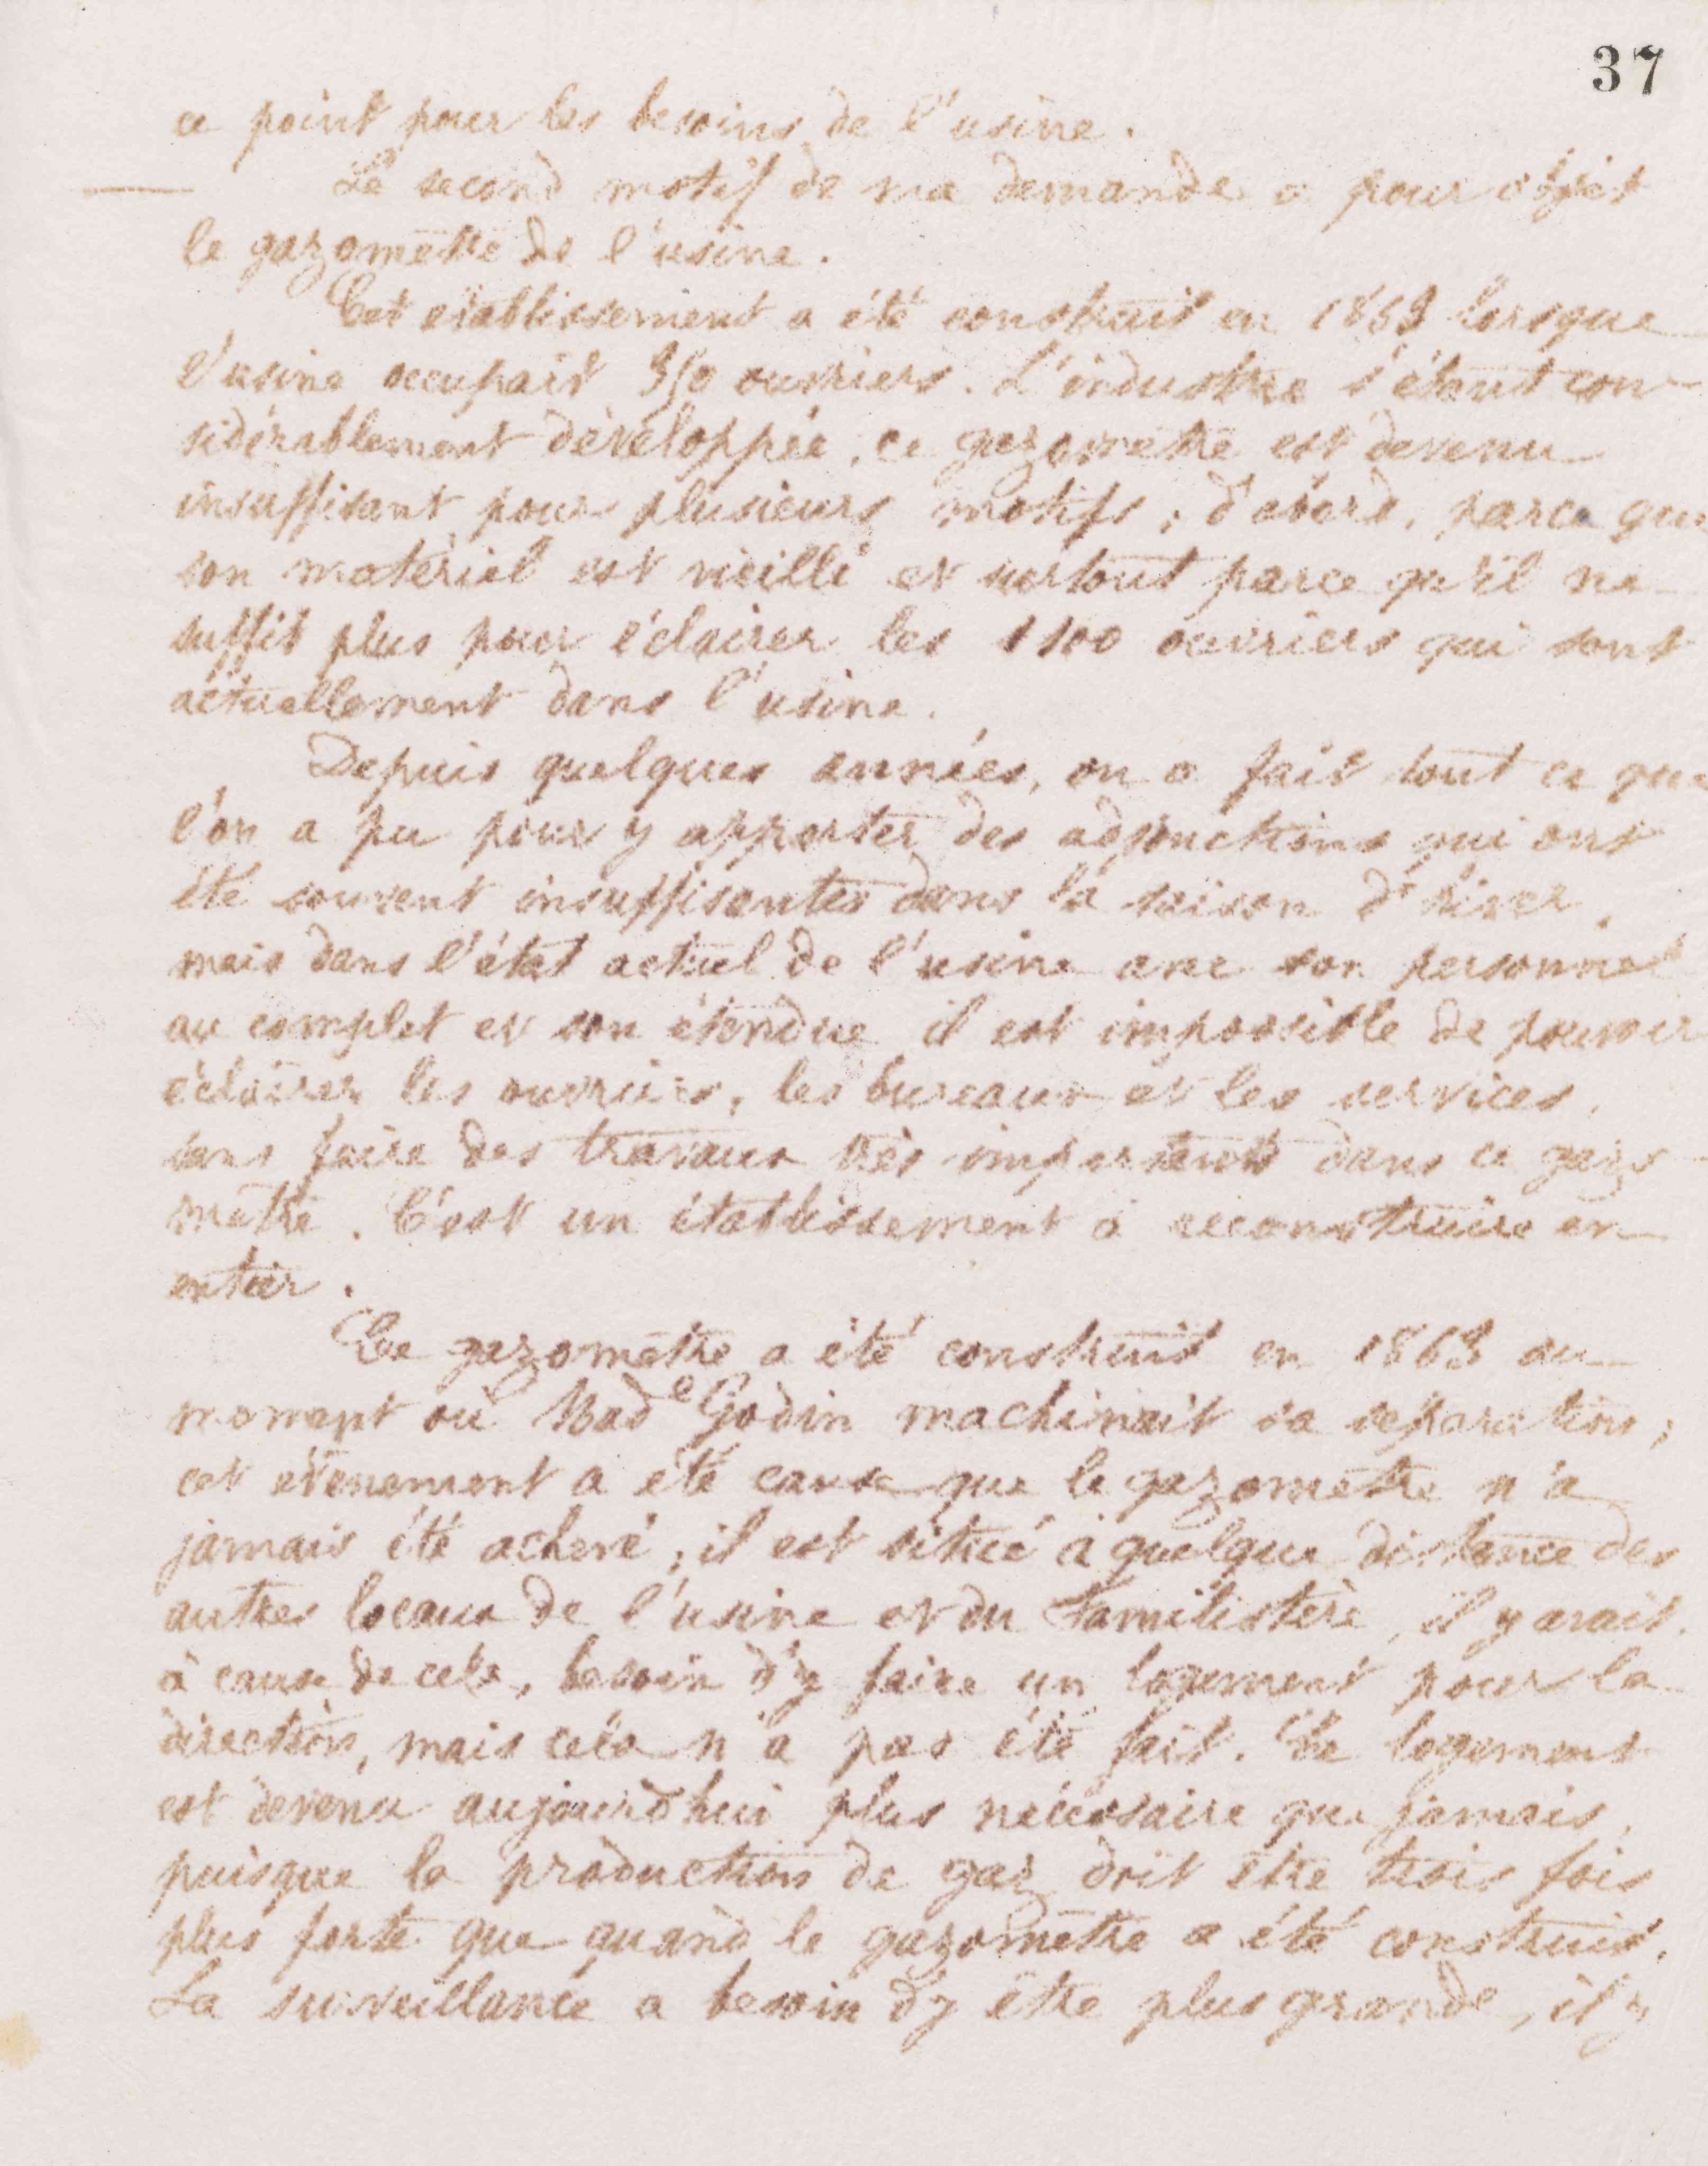 37
ce point pour les besoins de l'usine.
Le second motif de ma demande a pour objet
le gazomètre de l'usine.
Cet établissement a été construit en 1863 lorsque
l'usine occupait 350 ouvriers. L'industrie s'étant con-
sidérablement développée, ce gazomètre est devenu
insuffisant pour plusieurs motifs ; d'abord, parce que
son matériel est vieilli et surtout parce qu'il ne
suffit plus pour éclairer les 1100 ouvriers qui sont
actuellement dans l'usine.
Depuis quelques années, on a fait tout ce que
l'on a pu pour y apporter des adjonctions qui ont
été souvent insuffisantes dans la saison d'hiver,
mais dans l'état actuel de l'usine avec son personnel
au complet et son étendue il est impossible de pouvoir
éclairer les ouvriers, les bureaux et les services,
sans faire des travaux très importants dans ce gazo-
mètre. C'est un établissement à reconstruire en
entier.
Ce gazomètre a été construit en 1863 au
moment où Made Godin machinait sa séparation ;
cet évènement a été cause que le gazomètre n'a
jamais été achevé ; il est situé à quelque distance des
autres locaux de l'usine et du Familistère, il y avait,
à cause de cela, besoin d'y faire un logement pour la
direction, mais cela n'a pas été fait. Ce logement
est devenu aujourd'hui plus nécessaire que jamais,
puisque la production de gaz doit être trois fois
plus forte que quand le gazomètre a été construit.
La surveillance a besoin d'y être plus grande, il y